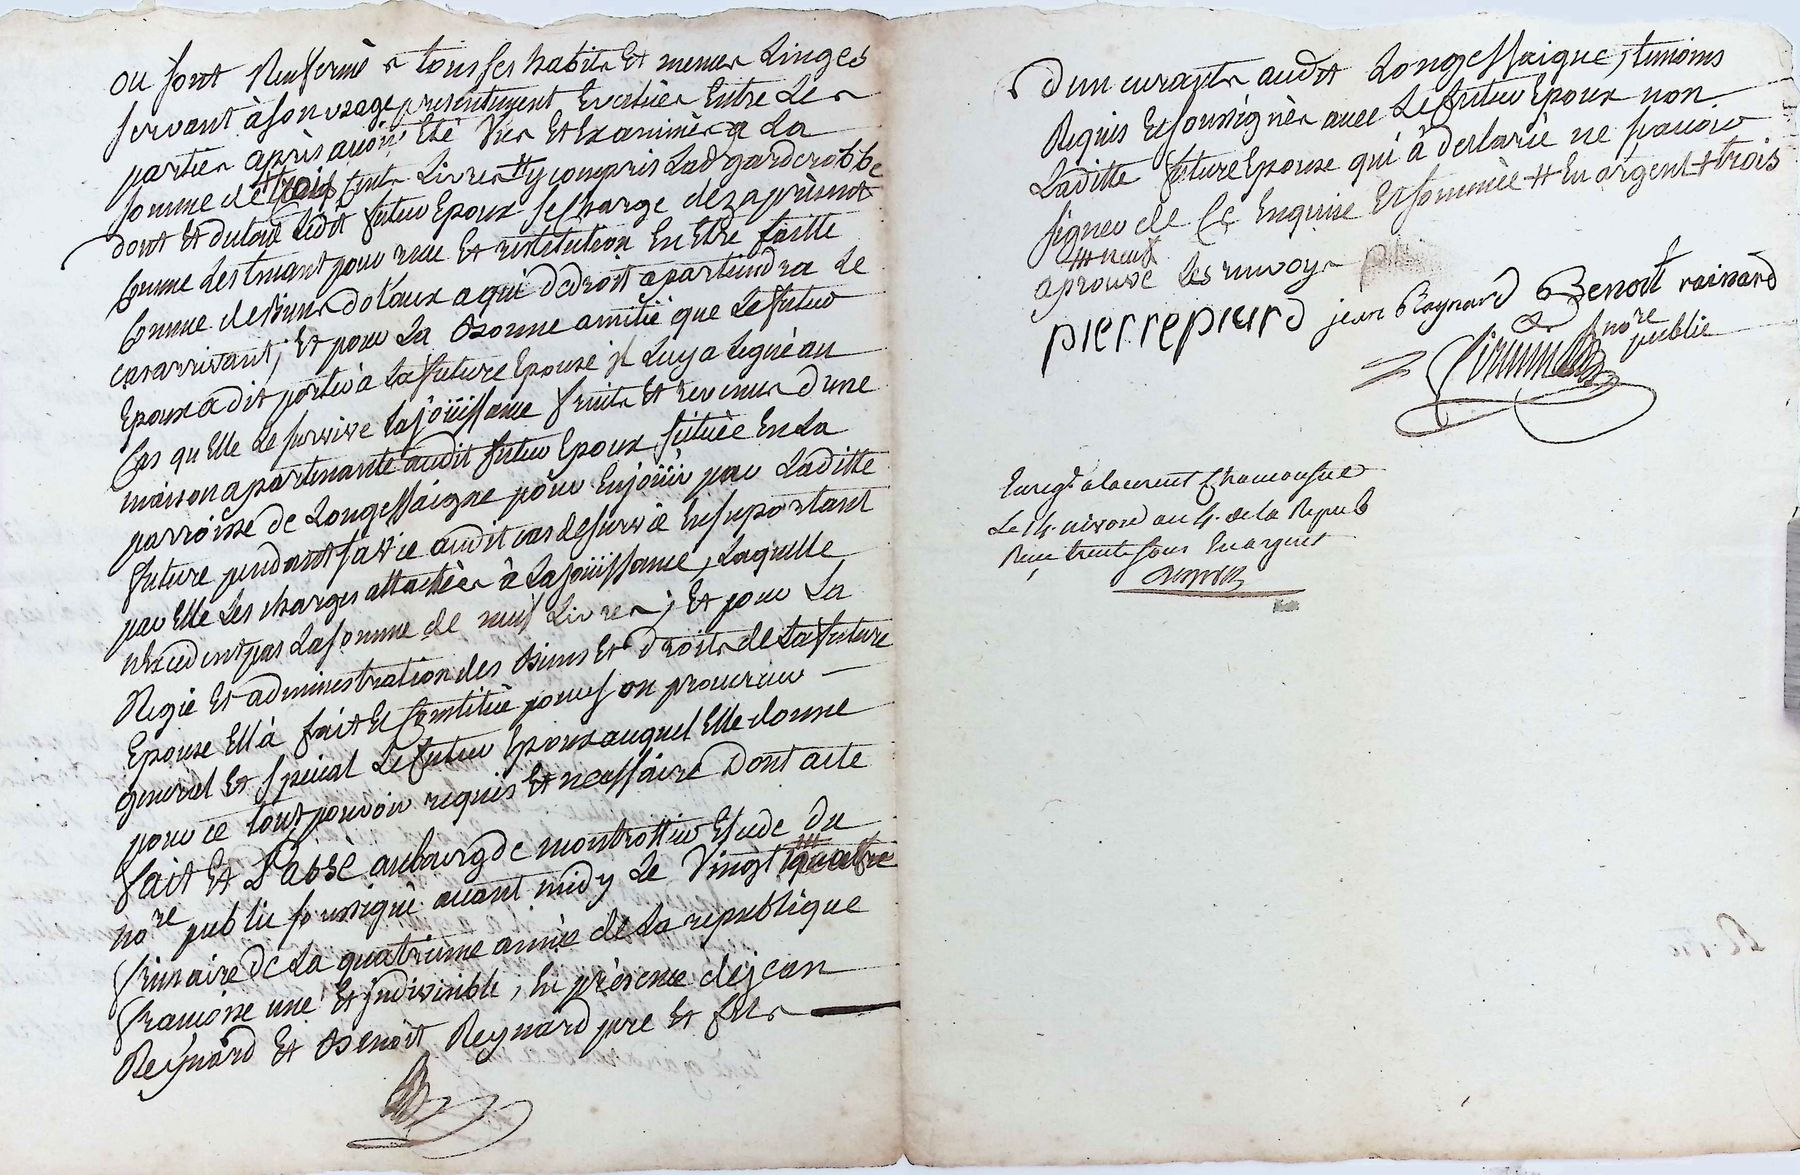 ou sont Renfermé tous ses habits Et menus Linges
servant à son usage presentement Evaluée Entre Les
parties après avoir Eté Vüe Et Examinée a La
somme de trois cents Livres # y compris Lad. garderobbe
dont Et du tout Ledit futur Epoux se charge dezaprésent
Comme Les tenant pour reçue Et restitution En Etre faitte
Comme de biens dotaux a qui de droit apartiendra Le
cas arrivant; Et pour La bonne amitié que Le futur
Epoux a dit porter à La future Epouse il Luy a Legué au
Cas qu'Elle Le survive La joüissance fruits Et revenus d'une
maison apartenante audit futur Epoux située En La
parroisse de Longessaigne pour En joüir par Laditte
future pendant sa vie audit cas de survie En suportant
par Elle Les charges attachées à La joüissance, Laquelle
n'Excedent pas La somme de neuf Livres; Et pour La
Regie Et administration des biens Et droits de La future
Epouse Ell'a fait Et Constitué pour son procureur
general Et special Le futur Epoux auquel Elle donne
pour ce tout pouvoir requis Et necessaire Dont acte
fait Et Passé au bourg de montrottier Etude du
no.re public soussigné avant midy Le Vingt quatre
frimaire de La quatrieme année de La republique
francoise une Et indivisible, En présence de jean
Reynard Et Benoit Reynard pere Et fils
d'un curante audit Longessaigne, temoins
Requis Et soussignés avec Le futur Epoux non
Laditte future Epouse qui à déclaré ne savoir
signer de Ce Enquise Et sommée # En argent + trois
### neuf
aprouvé Les renvoys
pierre pierd jean Raynard Benoit rainard
no.re
public
Enreg.t a laurent Chamousset
Le 14. nivose an 4. de la Repub
Reçu trente sous En argent